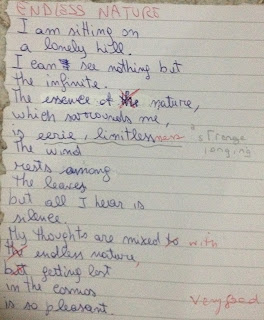 ENDLESS NATURE
I am sitting on
a lonely hill.
I can see nothing but
the infinite.
The essence of the nature,
which sorrounds me,
is eerie, limitlessness "strange
The wind longing"
rests among
the leaves
but all I hear is
silence.
My thoughts are mixed to with
the endless nature,
but getting lost
in the cosmos
is so pleasant. Very good